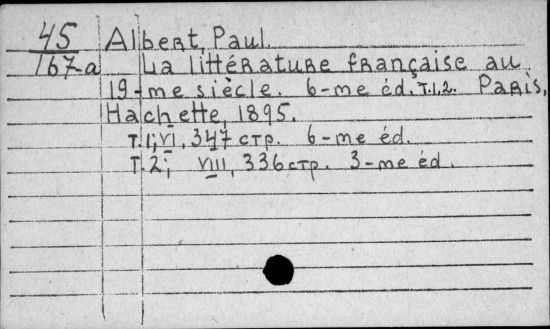 45 Albert, Paul
167-a La littérature française au
19-me siècle. 6-me éd. T.1,2. Paris,
Hachette, 1895.
T.1; VI, 347 стр. 6-me éd.
T.2; VIII, 336 стр. 3-me éd.